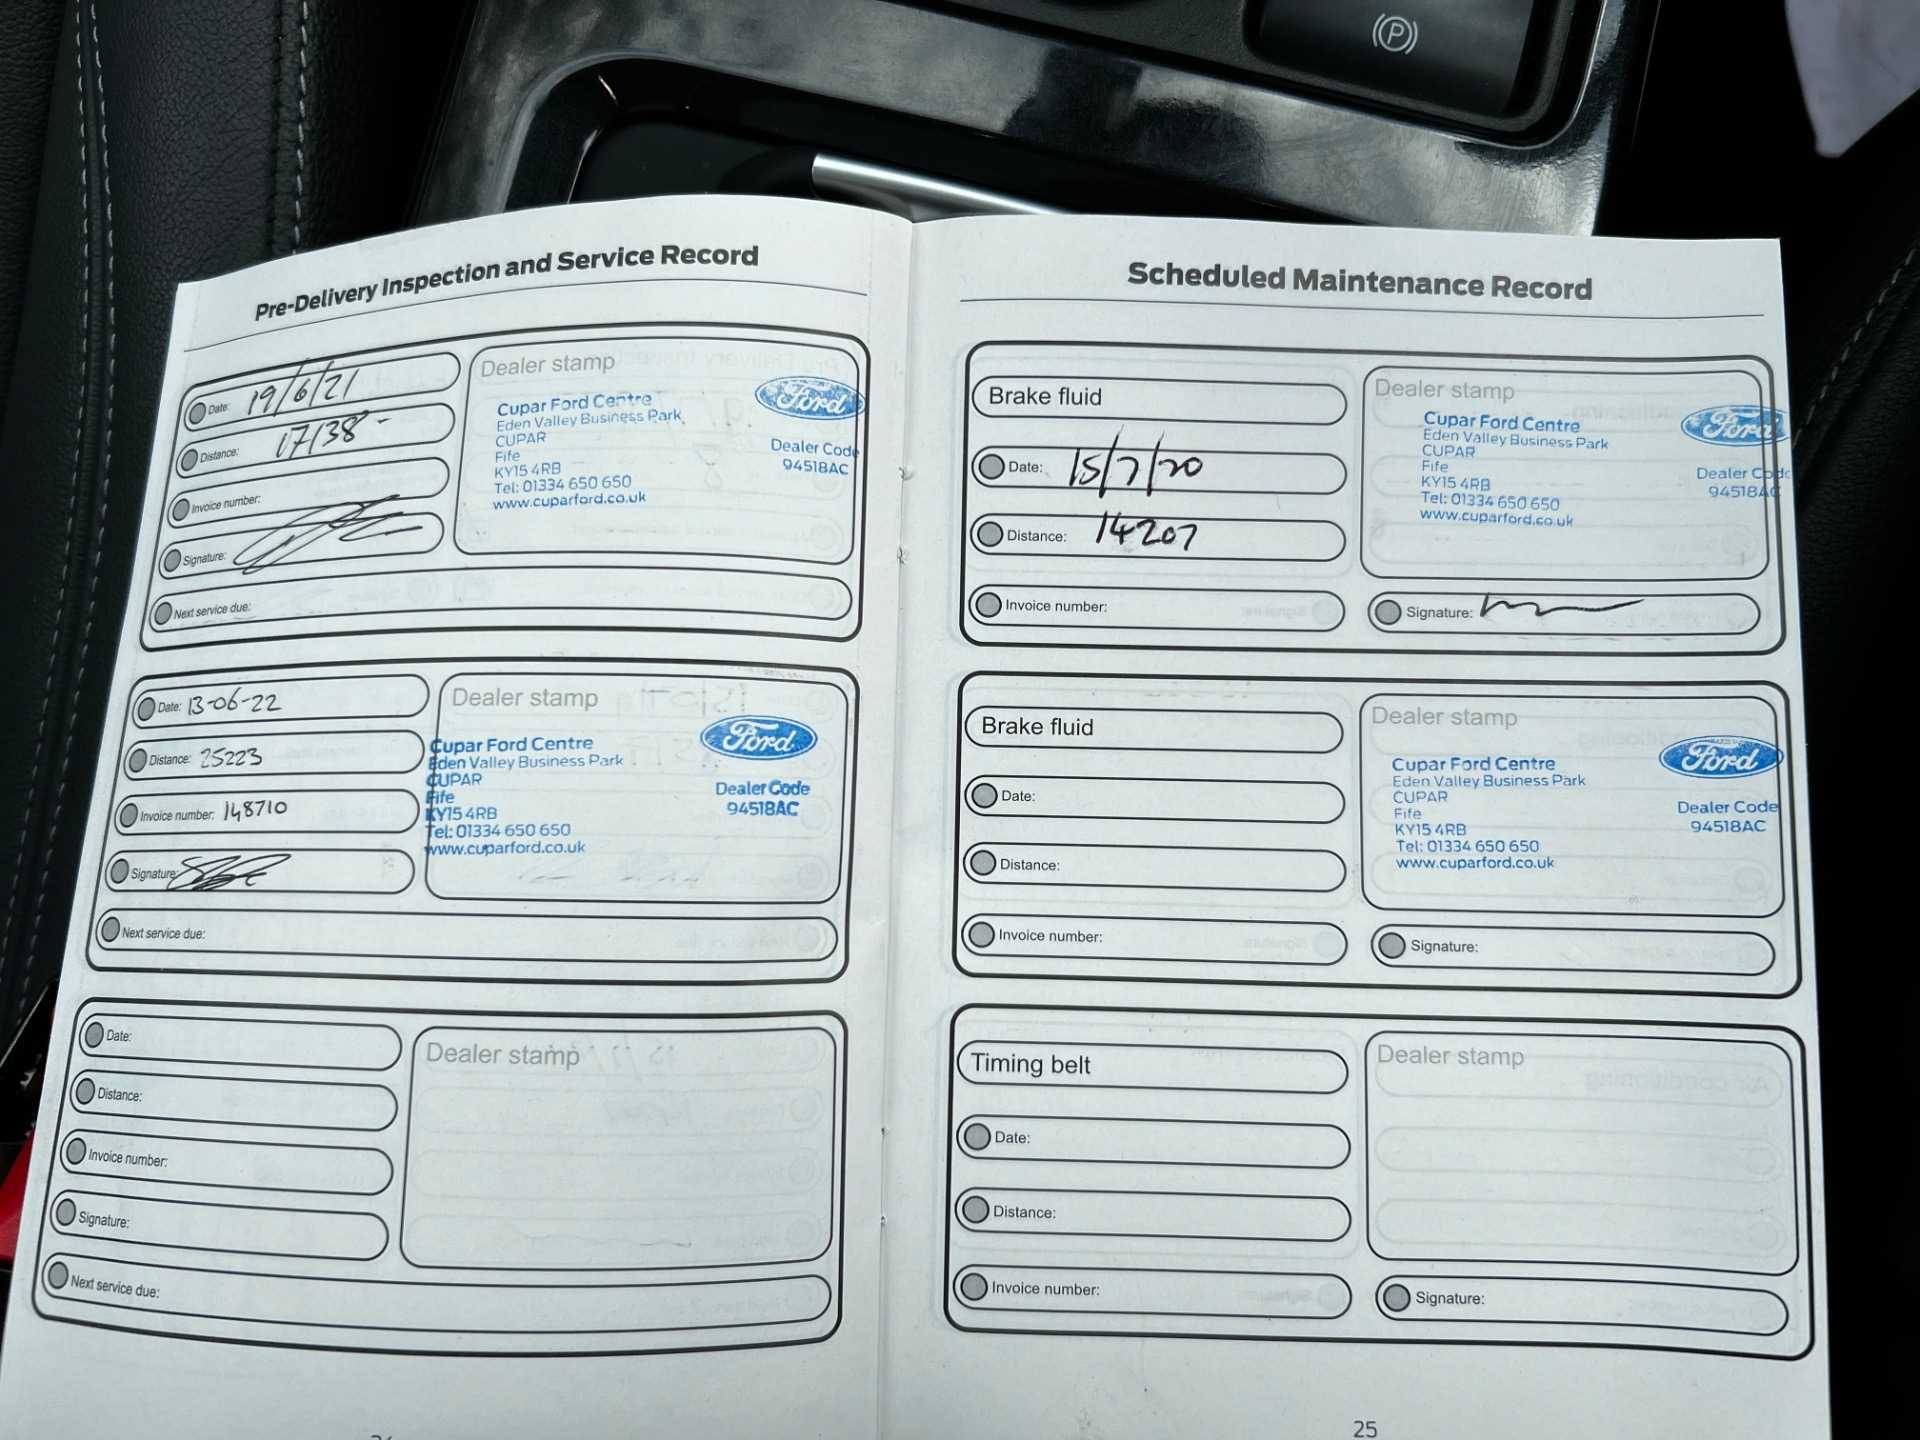 Pre-Delivery Inspection and Service Record
Date: 19/6/21
Distance: 17138
Invoice number:
Signature:
Next service due:
Dealer stamp
Cupar Ford Centre
Eden Valley Business Park
CUPAR
Fife
KY15 4RB
Tel: 01334 650 650
www.cuparford.co.uk
Ford
Dealer Code
94518AC
Date: 13-06-22
Distance: 25223
Invoice number: 148710
Signature:
Next service due:
Dealer stamp
Cupar Ford Centre
Eden Valley Business Park
CUPAR
Fife
KY15 4RB
Tel: 01334 650 650
www.cuparford.co.uk
Ford
Dealer Code
94518AC
Date:
Distance:
Invoice number:
Signature:
Next service due:
Dealer stamp
Scheduled Maintenance Record
Brake fluid
Date: 15/7/20
Distance: 14207
Invoice number:
Dealer stamp
Cupar Ford Centre
Eden Valley Business Park
CUPAR
Fife
KY15 4RB
Tel: 01334 650 650
www.cuparford.co.uk
Ford
Dealer Code
94518AC
Signature:
Brake fluid
Date:
Distance:
Invoice number:
Dealer stamp
Cupar Ford Centre
Eden Valley Business Park
CUPAR
Fife
KY15 4RB
Tel: 01334 650 650
www.cuparford.co.uk
Ford
Dealer Code
94518AC
Signature:
Timing belt
Date:
Distance:
Invoice number:
Dealer stamp
Signature:
25
P